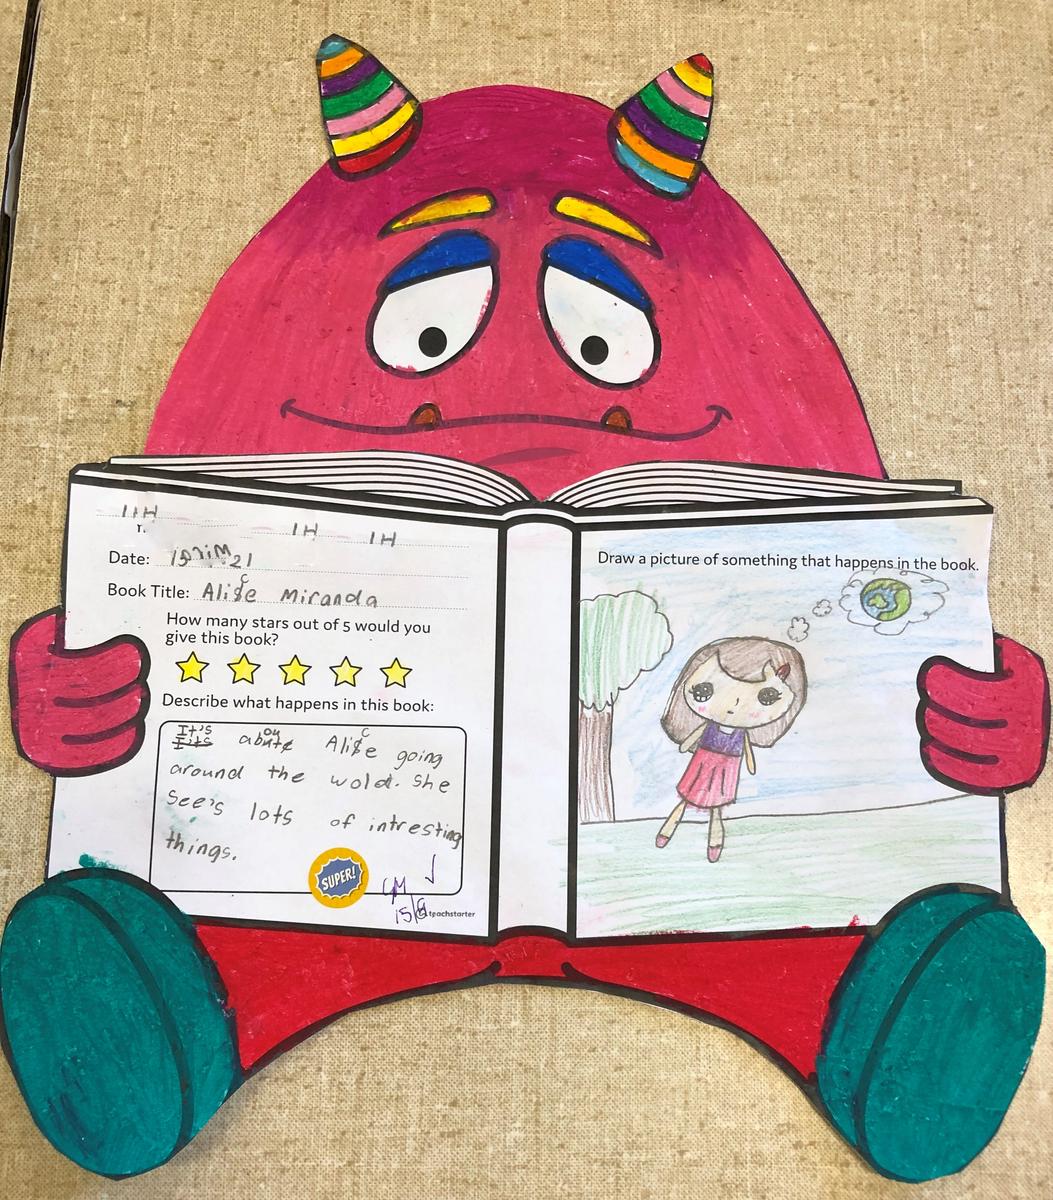 Date:
Book Title: Alice Miranda
How many stars out of 5 would you
give this book?
Describe what happens in this book:
It's about Alice going
around the wold. She
see's lots of intresting
things.
SUPER!
CM
15/
teachstarter
Draw a picture of something that happens in the book.